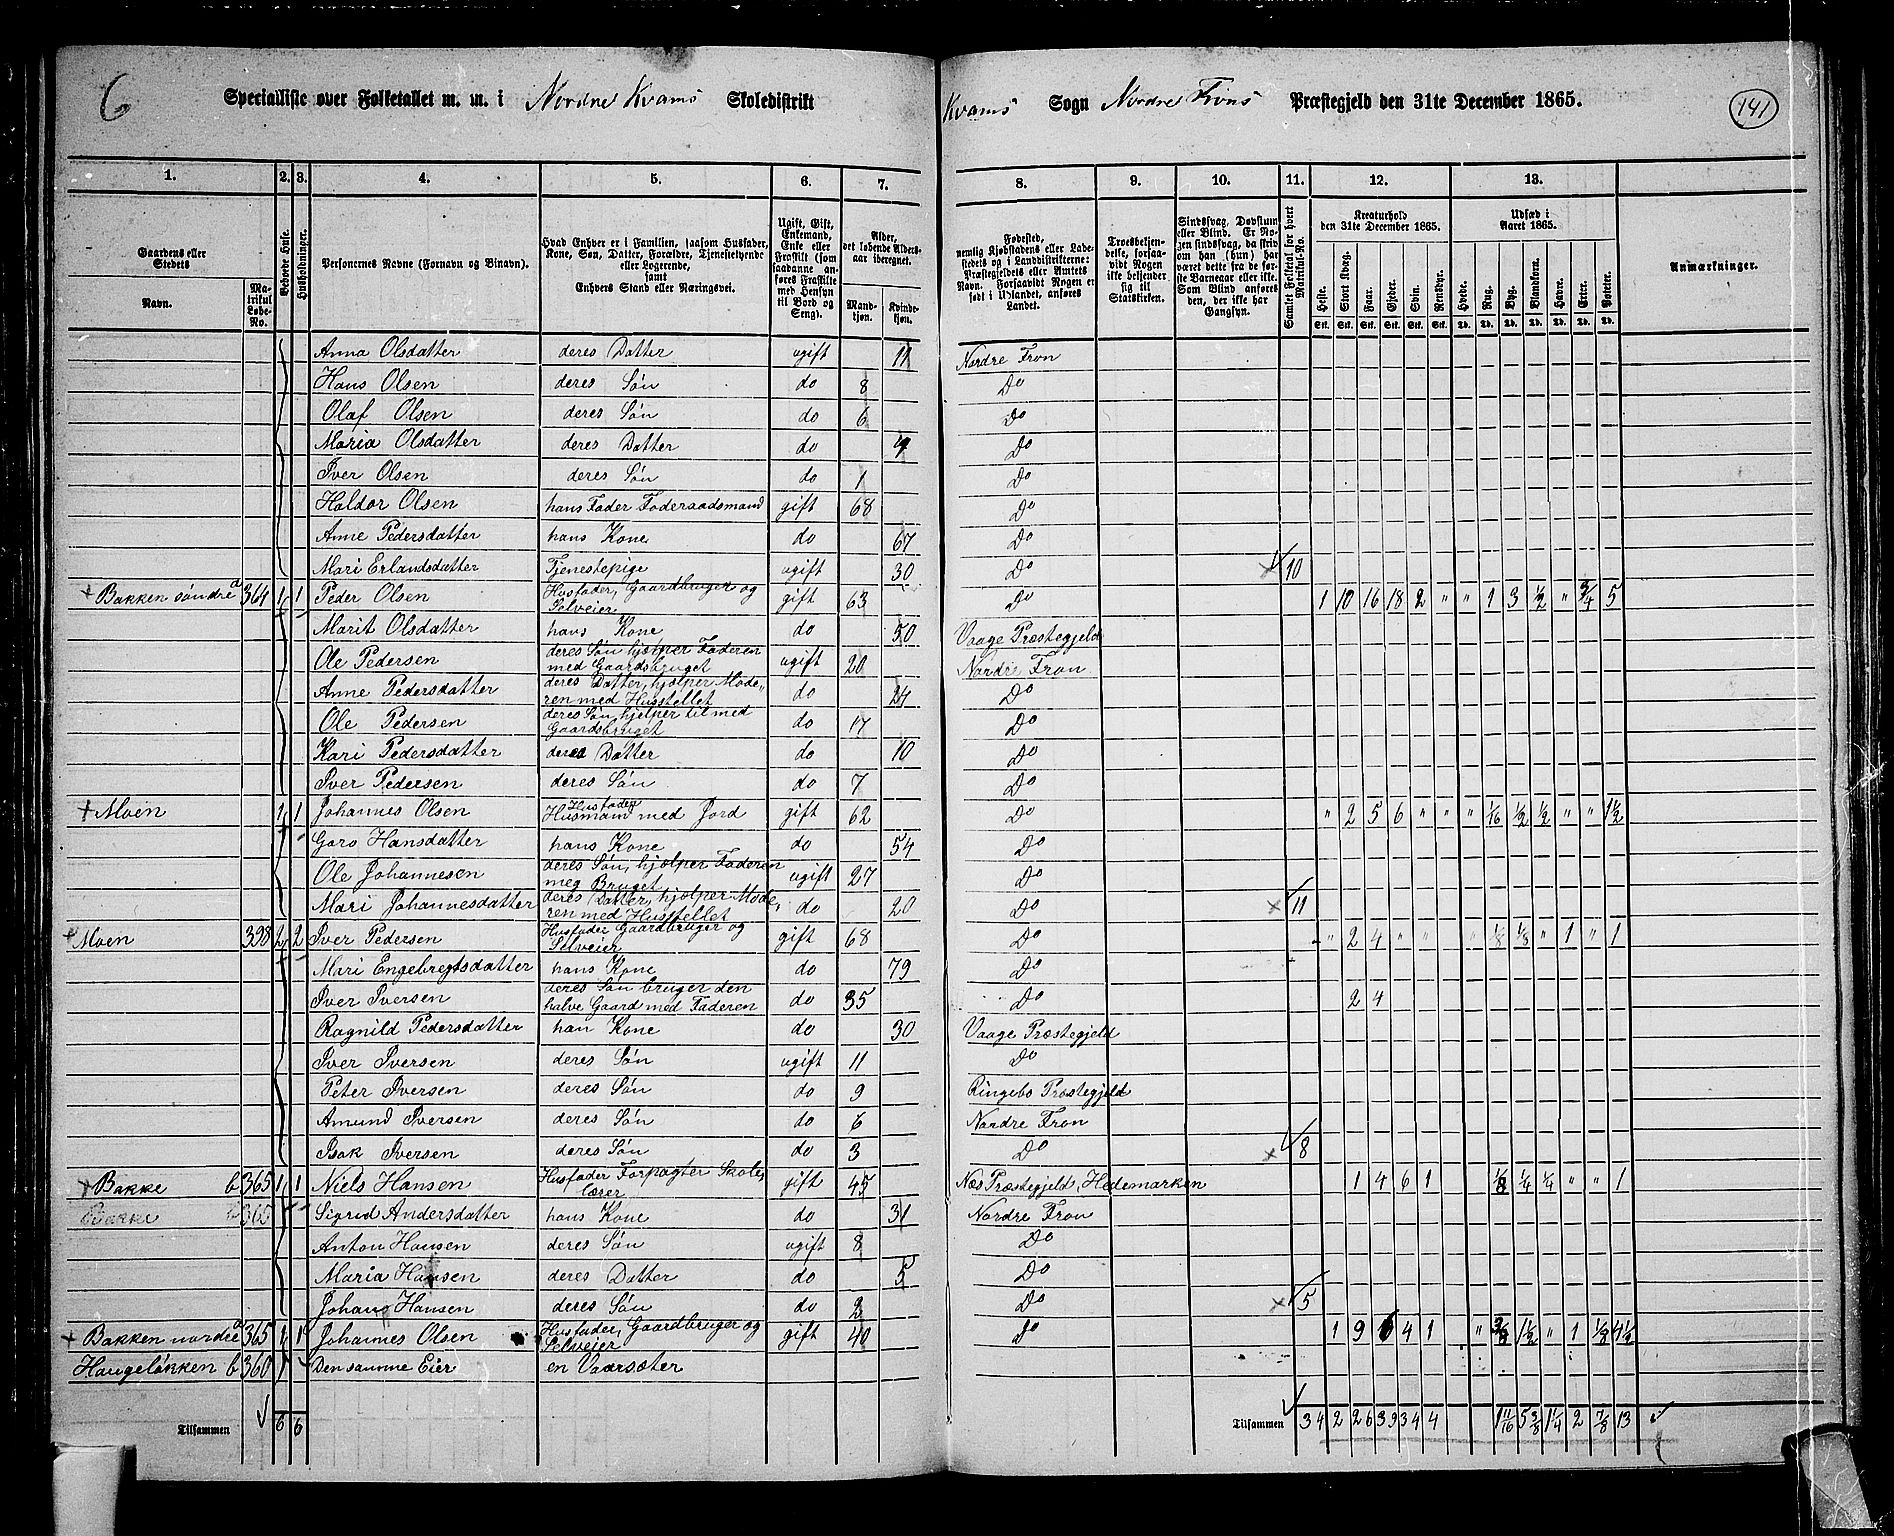 6 Specialliste over Folketallet m. m. i Nordre Kvams Skoledistrikt Kvams Sogn Nordre Frons Præstegjeld den 31te December 1865. 141
1. 2. 3. 4. 5. 6. 7. 8. 9. 10. 11. 12. 13.
Gaardens eller Stedets
Navn.
Matrikul Løbe-No.
Beboede Huse.
Husholdninger.
Personernes Navne (Fornavn og Binavn).
Hvad Enhver er i Familien, saasom Husfader, Kone, Søn, Datter, Forældre, Tjenestetyende eller Logerende, samt Enhvers Stand eller Næringsvei.
Ugift, Gift, Enkemand, Enke eller Fraskilt (som saadanne anføres Fraskilte med Hensyn til Bord og Seng).
Alder, det løbende Aldersaar iberegnet.
Mandkjøn.
Kvindekjøn.
Fødested, nemlig Kjøbstadens eller Ladestedets og i Landdistrikterne: Præstegjeldets eller Amtets Navn. Forsaavidt Nogen er født i Udlandet, anføres Landet.
Troesbekjendelse, forsaavidt Nogen ikke bekjender sig til Statskirken.
Sindssvag, Døvstum eller Blind. Er Nogen sindssvag, da skrives om han (hun) har været dette fra de første Barneaar eller ikke. Som Blind anføres den, der ikke har Gangsyn.
Samlet Folketal for hvert Matrikul-No.
Kreaturhold den 31te December 1865.
Heste. Stort Kvæg. Faar. Gjeder. Svin. Rensdyr.
Stk. Stk. Stk. Stk. Stk. Stk.
Udsæd i Aaret 1865.
Hvede. Rug. Byg. Blandkorn. Havre. Erter. Poteter.
Td. Td. Td. Td. Td. Td. Td.
Anmærkninger.
Anna Olsdatter deres Datter ugift 11 Nordre Fron
Hans Olsen deres Søn do 8 Do
Olaf Olsen deres Søn do 6 Do
Maria Olsdatter deres Datter do 4 Do
Iver Olsen deres Søn do 1 Do
Haldor Olsen hans Fader Føderaadsmand gift 68 Do
Anne Pedersdatter hans Kone do 67 Do
Mari Erlandsdatter Tjenestepige ugift 30 Do × 10
+ Bakken søndre a 364 1 1 Peder Olsen Husfader, Gaardbruger og Selveier gift 63 Do 1 10 16 18 2 " " 1 3 1/2 " 3/4 5
Marit Olsdatter hans Kone do 50 Vaage Præstegjeld
Ole Pedersen deres Søn hjælper Faderen med Gaardsbruget ugift 20 Nordre Fron
Anne Pedersdatter deres Datter, hjælper Moderen med Husstellet do 24 Do
Ole Pedersen deres Søn hjelper til med Gaardsbruget do 17 Do
Kari Pedersdatter deres Datter do 10 Do
Iver Pedersen deres Søn do 7 Do
+ Moen 1 1 Johannes Olsen Husfader Husmand med Jord gift 62 Do " 2 5 6 " " " 1/16 1/2 1/2 " " 1 1/2
Goro Hansdatter hans Kone do 54 Do
Ole Johannesen deres Søn, hjælper Faderen meg Bruget ugift 27 Do
Mari Johannesdatter deres Datter, hjælper Moderen med Husstellet do 20 Do × 11
+ Moen 398 2 2 Iver Pedersen Husfader Gaardbruger og Selveier gift 68 Do " 2 4 " " " 1/8 1/8 " 1 " 1
Mari Engebregtsdatter hans Kone do 79 Do
Iver Iversen deres Søn bruger den halve Gaard med Faderen do 35 Do 2 4
Ragnild Pedersdatter han Kone do 30 Vaage Præstegjeld
Iver Iversen deres Søn ugift 11 Do
Peter Iversen deres Søn do 9 Ringebo Præstegjeld
Amund Iversen deres Søn do 6 Nordre Fron
Isak Iversen deres Søn do 3 Do × 8
+ Bakke b 365 1 1 Niels Hansen Husfader Forpagter Skolelærer gift 45 Næs Præstegjeld, Hedemarken 1 4 6 1 1/8 1/4 1/4 " " 1
Bakke b 365 Sigrid Andersdatter hans Kone do 31 Nordre Fron
Anton Hansen deres Søn ugift 8 Do
Maria Hansen deres Datter do 5 Do
Johans Hansen deres Søn do 2 Do × 5
+ Bakken nordre a 365 1 1 Johannes Olsen Husfader, Gaardbruger og Selveier gift 40 Do 1 9 6 4 1 " 3/8 1 1/2 " 1 1/8 4 1/2
Haugeløkken b 360 Densamme Eier en Vaarsæter
Tilsammen 6 6 Tilsammen 34 2 26 39 34 4 1 11/16 5 3/8 1 1/4 2 7/8 13